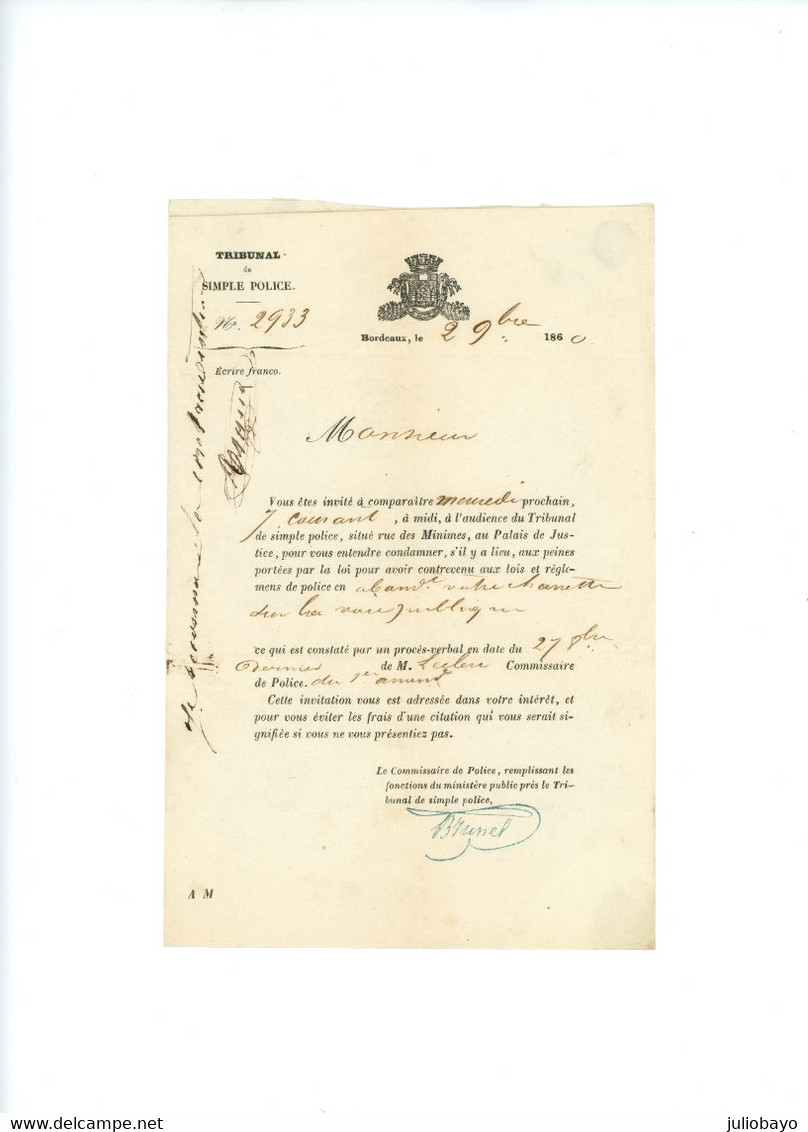 TRIBUNAL
de
SIMPLE POLICE.
N.° 2933
Écrire franco.
Bordeaux, le 2 9.bre 1860
Monsieur
Vous êtes invité à comparaître mercredi prochain,
7 courant, à midi, à l'audience du Tribunal
de simple police, situé rue des Minimes, au Palais de Jus-
tice, pour vous entendre condamner, s'il y a lieu, aux peines
portées par la loi pour avoir contrevenu aux lois et règle-
mens de police en aband.t votre charrette
sur la voie publique
ce qui est constaté par un procès-verbal en date du 27 8.bre
Dernier de M. Leclerc Commissaire
de Police. du 1er arrond.t
Cette invitation vous est adressée dans votre intérêt, et
pour vous éviter les frais d'une citation qui vous serait si-
gnifiée si vous ne vous présentiez pas.
Le Commissaire de Police, remplissant les
fonctions du ministère public près le Tri-
bunal de simple police,
Brunel
A M
www.delcampe.net
juliobayo